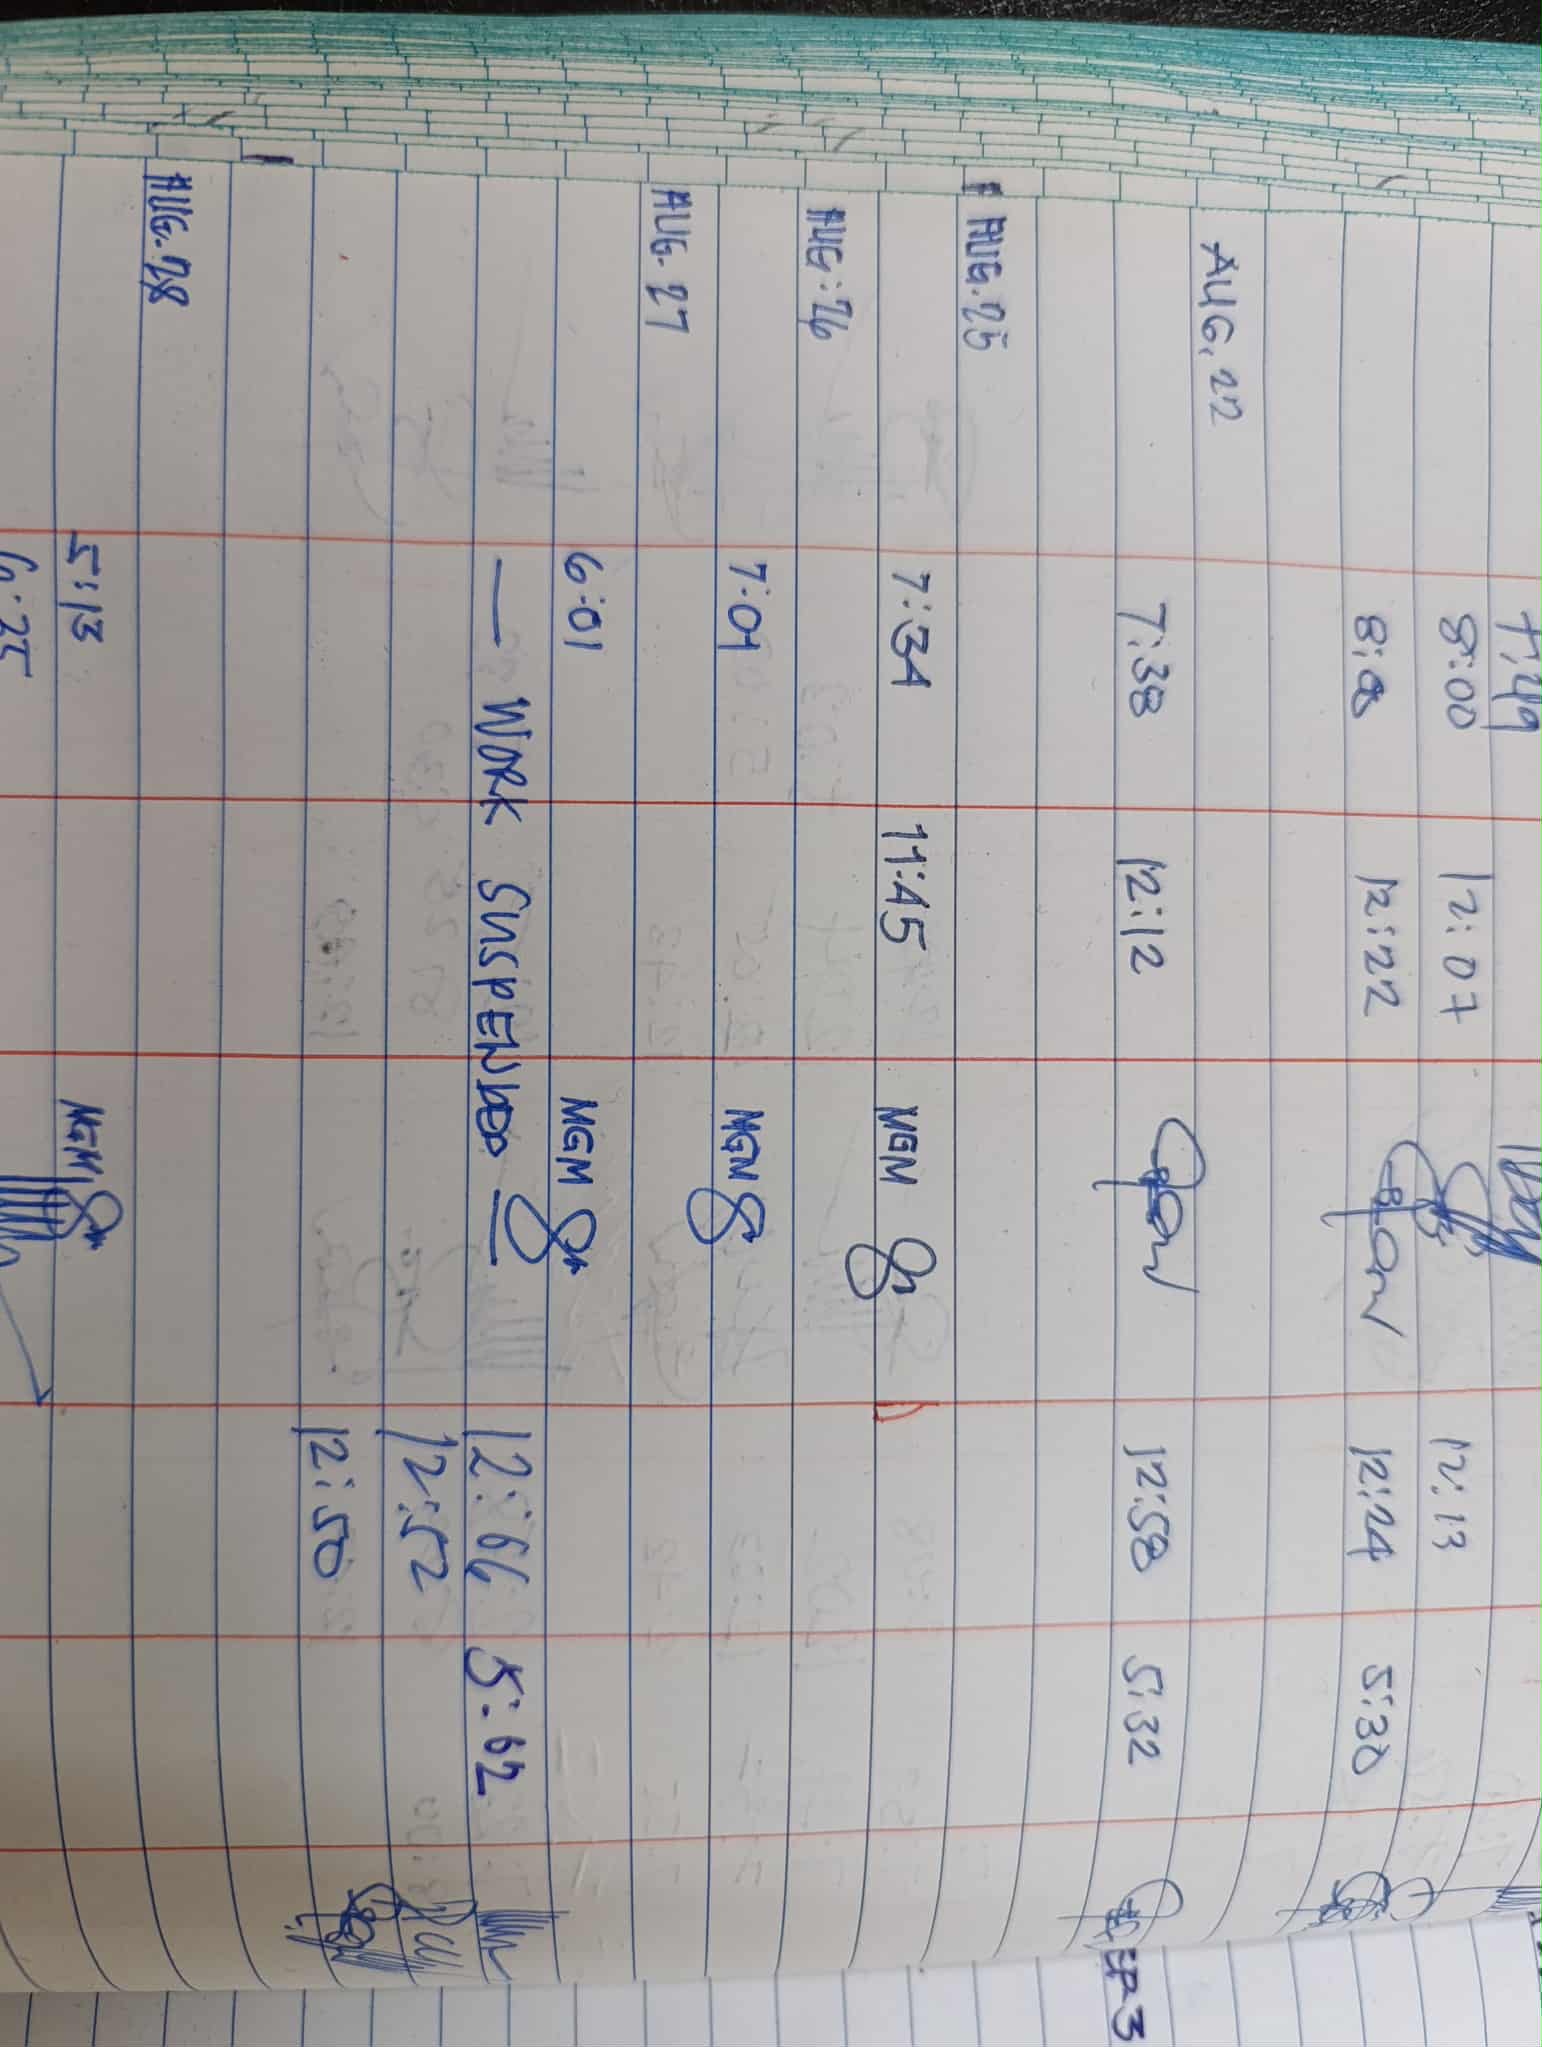 7:49
8:00 12:07 12:13
8:08 12:22 12:24 5:30
AUG. 22
7:38 12:12 12:58 5:32
AUG. 25
7:34 11:45 MGM
AUG. 26
7:01 MGM
AUG. 27
6:01 MGM
— WORK SUSPENDED — 5:02
12:52
12:50
AUG. 28
5:13 MGM
6:25
EP 3